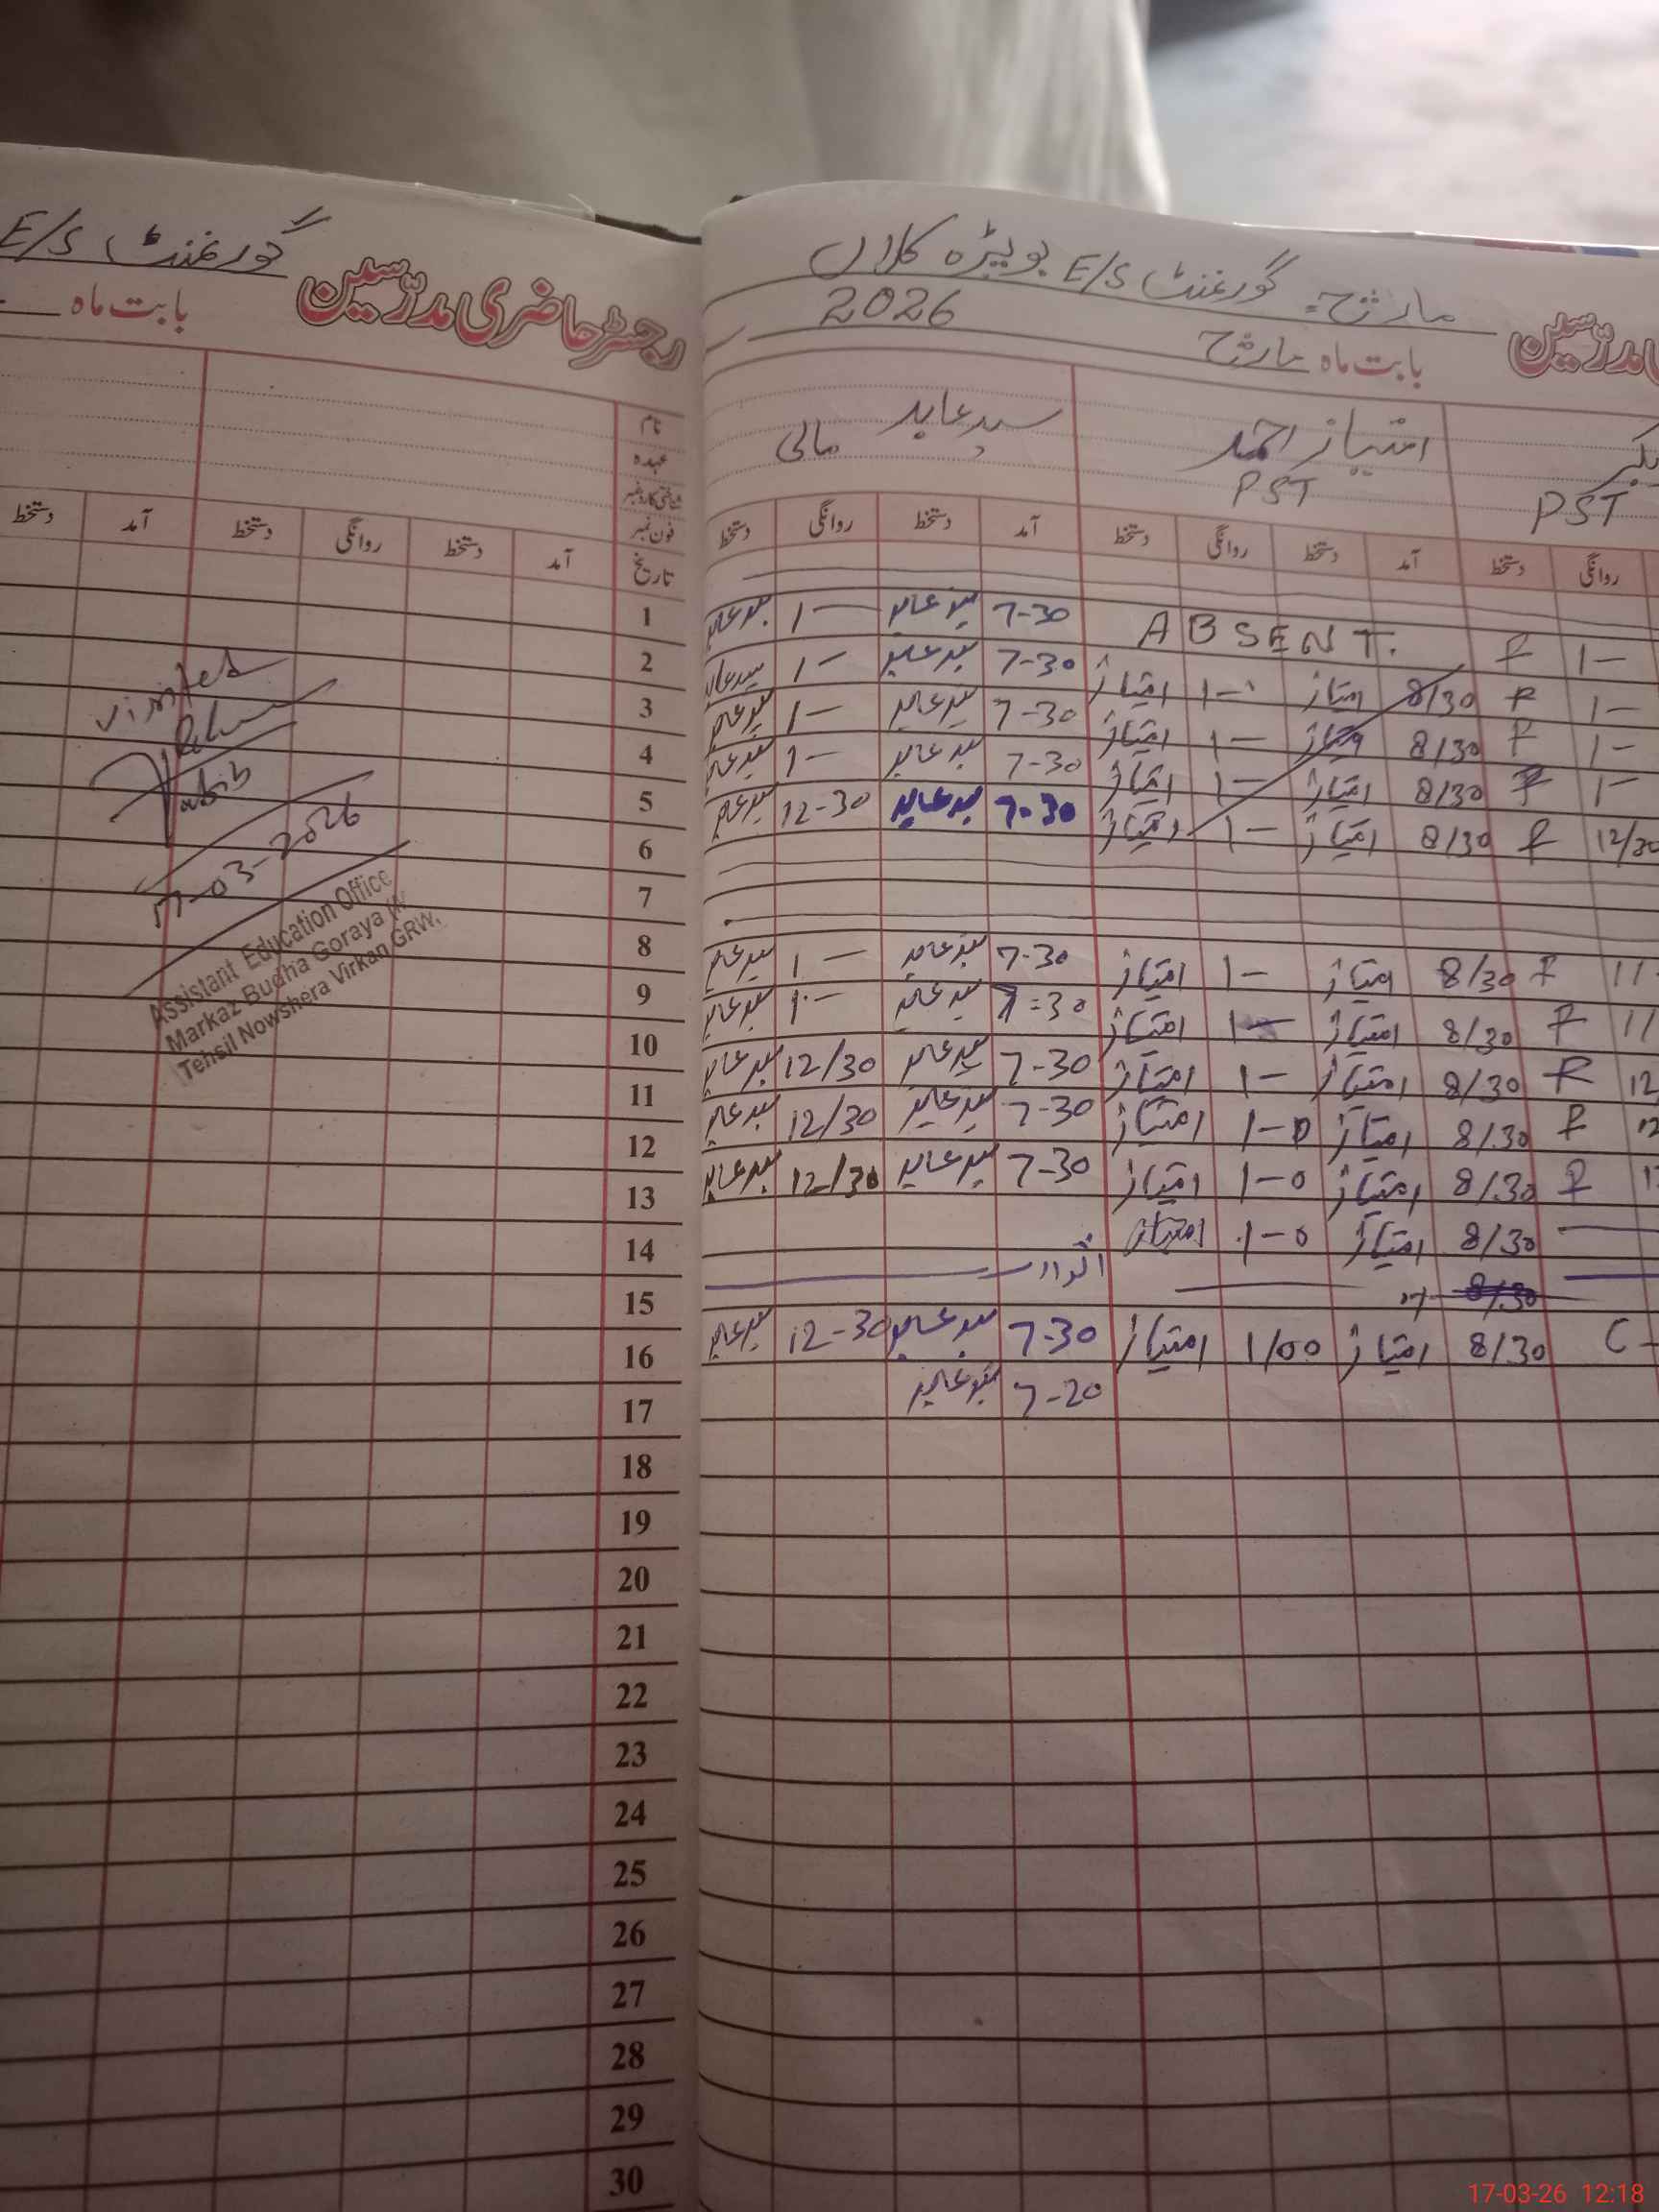 گورنمنٹ E/S
رجسٹر حاضری مدرسین
بابت ماہ
نام
عہدہ
شناختی کارڈ نمبر
فون نمبر
تاریخ
آمد دستخط روانگی دستخط آمد دستخط
1
2
3
4
5
6
7
8
9
10
11
12
13
14
15
16
17
18
19
20
21
22
23
24
25
26
27
28
29
30
visited
17-03-2026
Assistant Education Office
Markaz Budha Goraya
Tehsil Nowshera Virkan GRW.
مدرسین
مارچ گورنمنٹ E/S بوپڑہ کلاں
بابت ماہ مارچ 2026
امتیاز احمد سید عابد
PST PST مالی
روانگی دستخط آمد دستخط روانگی دستخط آمد دستخط روانگی دستخط
1- ABSENT. 7-30 سید عابد 1- سید عابد
1- 8/30 امتیاز 1- امتیاز 7-30 سید عابد 1- سید عابد
1- 8/30 امتیاز 1- امتیاز 7-30 سید عابد 1- سید عابد
1- 8/30 امتیاز 1- امتیاز 7-30 سید عابد 1- سید عابد
12/30 8/30 امتیاز 1- امتیاز 7-30 سید عابد 12-30 سید عابد
8/30 امتیاز 1- امتیاز 7-30 سید عابد 1- سید عابد
8/30 امتیاز 1- امتیاز 7=30 سید عابد 1- سید عابد
8/30 امتیاز 1- امتیاز 7-30 سید عابد 12/30 سید عابد
8/30 امتیاز 1-0 امتیاز 7-30 سید عابد 12/30 سید عابد
8/30 امتیاز 1-0 امتیاز 7-30 سید عابد 12/30 سید عابد
8/30 امتیاز 1-0 امتیاز
8/30 اتوار
8/30 امتیاز 1/00 امتیاز 7-30 سید عابد 12-30 سید عابد
7-20 سید عابد
17-03-26 12:18